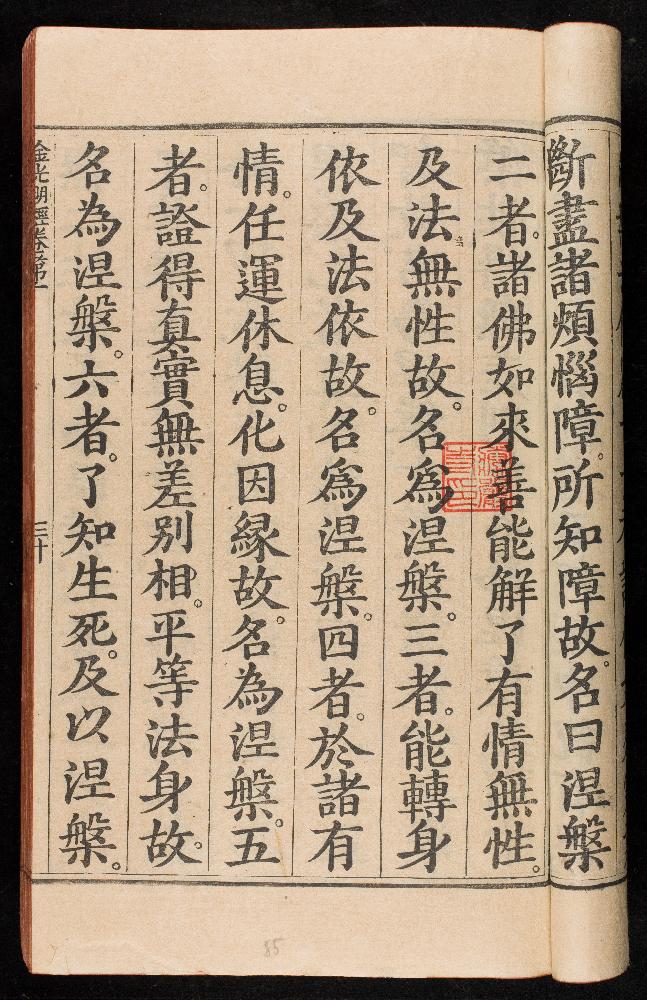 斷盡諸煩惱障。所知障故。名曰涅槃
二者。諸佛如來善能解了有情無性。
及法無性故。名爲涅槃。三者。能轉身
依及法依故。名爲涅槃。四者。於諸有
情。任運休息。化因緣故。名為涅槃。五
者。證得真實無差別相。平等法身故。
名為涅槃。六者。了知生死。及以涅槃。
金光明經卷第一
三十
85